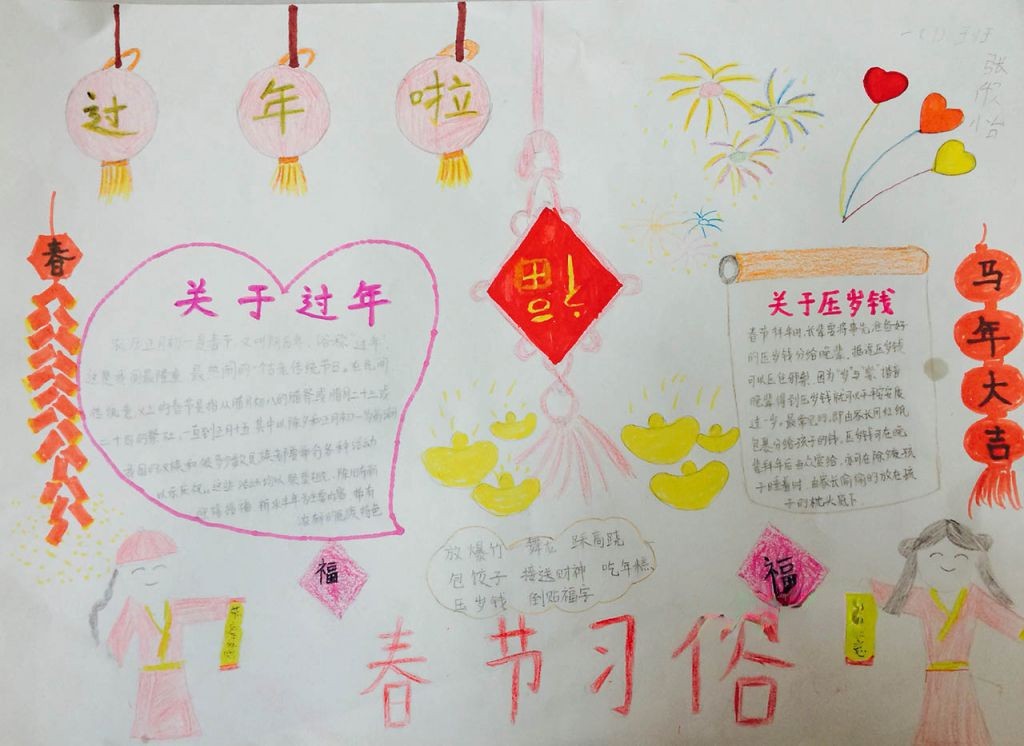 过年啦
张
春
福
马年大吉
关于过年
农历正月初一是春节，又叫阴历年，俗称"过年"
这是我国最隆重、最热闹的一个古老传统节日。在民间
传统意义上的春节是指从腊月初八的腊祭或腊月二十三或
二十四的祭灶，一直到正月十五，其中以除夕和正月初一为高潮
我国的汉族和很多少数民族都要举行各种活动
以示庆祝。这些活动均以祭祀祖先、除旧布新
迎禧接福、祈求丰年为主要内容，带有
浓郁的民族特色
关于压岁钱
春节拜年时，长辈要将事先准备好
的压岁钱分给晚辈，据说压岁钱
可以压住邪祟，因为"岁"与"祟"谐音
晚辈得到压岁钱就可以平平安安度
过一岁。最常见的，即由家长用红纸
包裹分给孩子的钱。压岁钱可在晚
辈拜年后当众赏给，亦可在除夕夜孩
子睡着时，由家长偷偷的放在孩
子的枕头底下
放爆竹 舞龙 踩高跷
包饺子 接送财神 吃年糕
压岁钱 倒贴福字
福
福
春节习俗